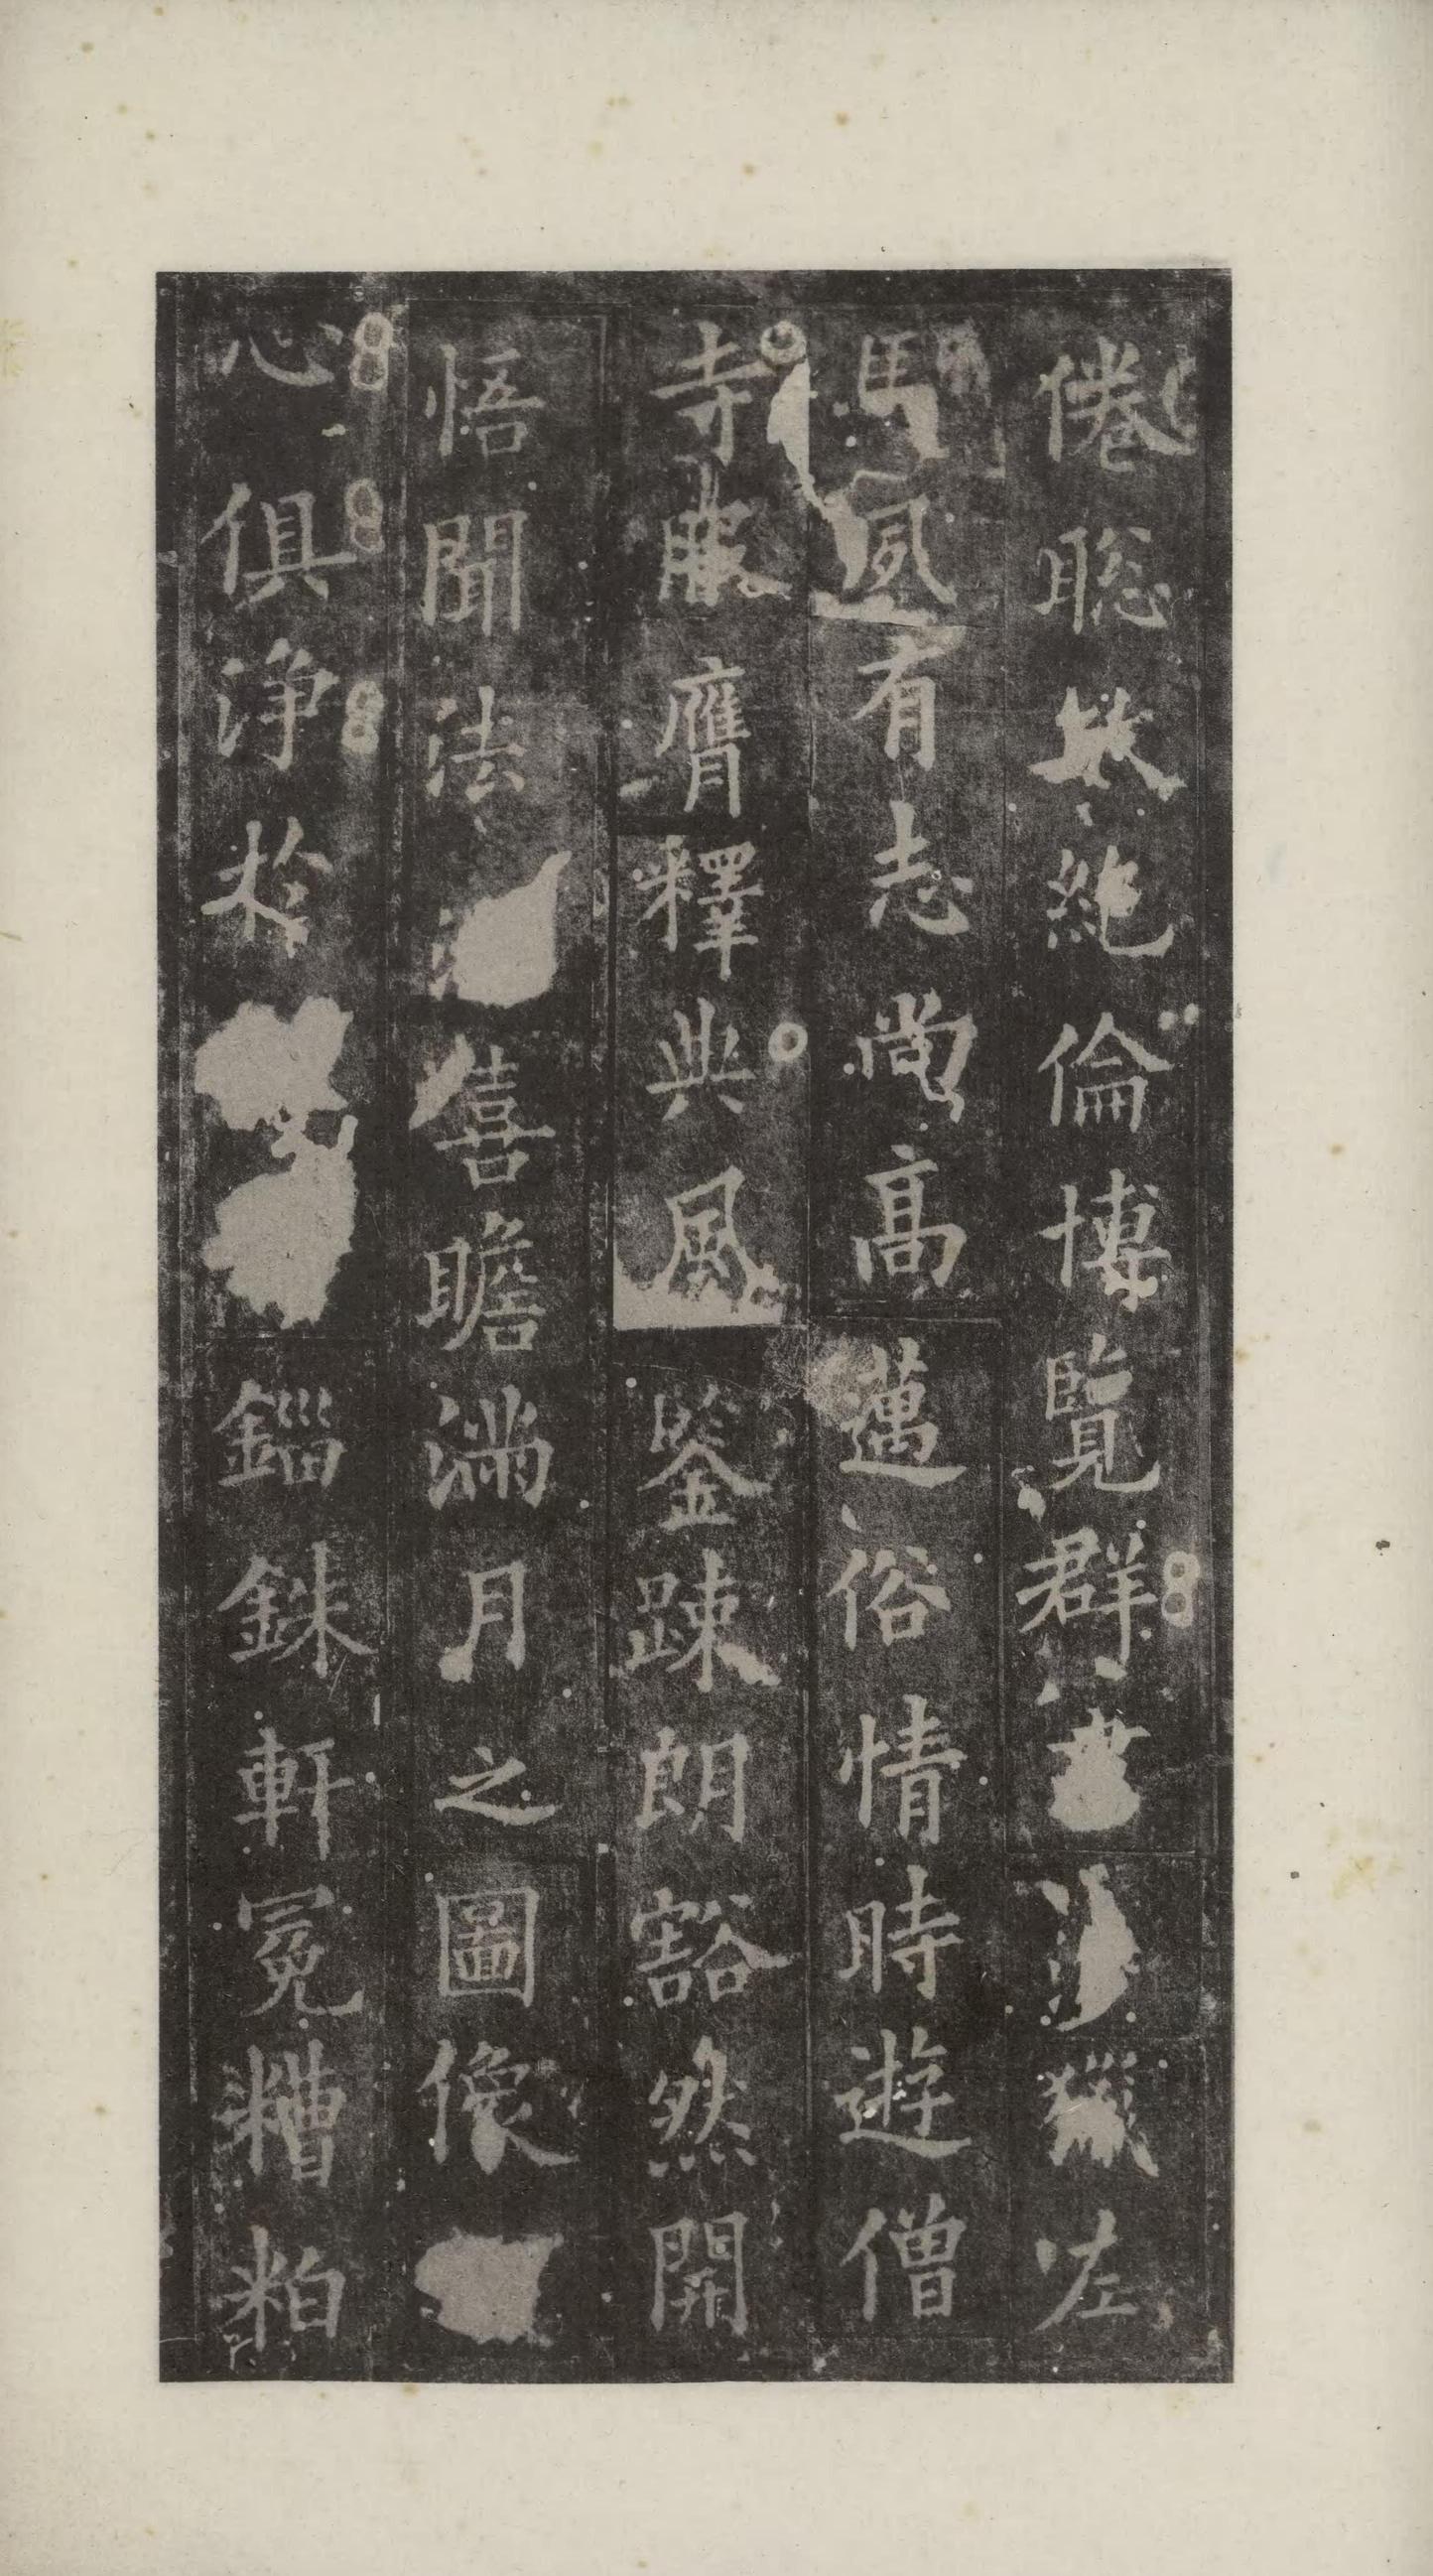 倦聡敏絶倫博覧群藝漁獵左
馬夙有志尚高邁俗情時遊僧
寺服膺釋典風鑒踈朗豁然開
悟聞法喜瞻滿月之圖像
心俱淨於錙銖軒冕糟粕